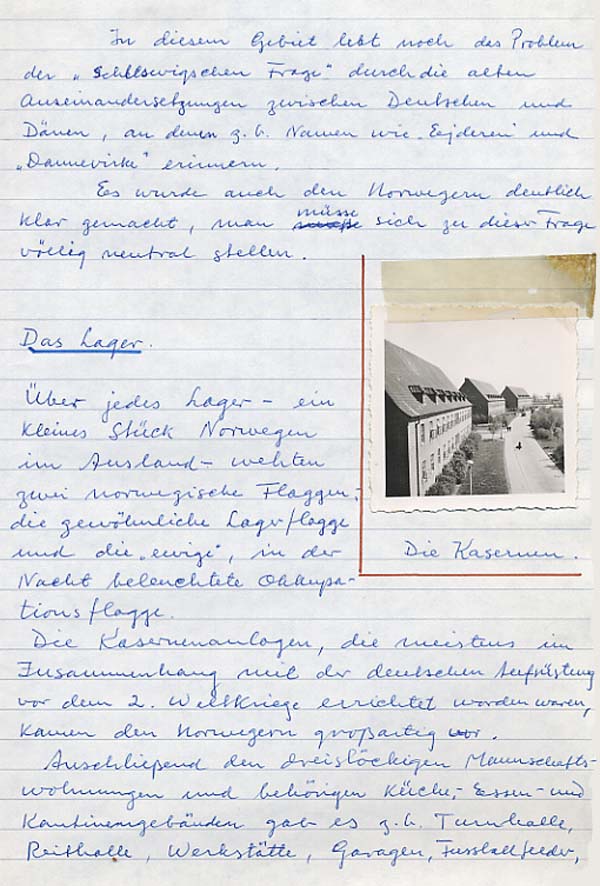 In diesem Gebiet lebt noch das Problem
der „Schleswigschen Frage" durch die alten
Auseinandersetzungen zwischen Deutschen und
Dänen, an denen z.b. Namen wie „Ejderen" und
„Dannevirke" erinnern.
Es wurde auch den Norwegern deutlich
klar gemacht, man müsse sich zu dieser Frage
völlig neutral stellen.
Das Lager.
Über jedes Lager – ein
kleines Stück Norwegen
im Ausland – wehten
zwei norwegische Flaggen,
die gewöhnliche Lagerflagge
und die „ewige", in der
Nacht beleuchtete Okkupa-
tionsflagge.
Die Kasernen.
Die Kasernenanlagen, die meistens im
Zusammenhang mit der deutschen Aufrüstung
vor dem 2. Weltkriege errichtet worden waren,
kamen den Norwegern großartig vor.
Anschließend den dreistöckigen Mannschafts-
wohnungen und behörigen Küche-, Essen- und
Kantinengebäuden gab es z.b. Turnhalle,
Reithalle, Werkstätte, Garagen, Fussballfelder,